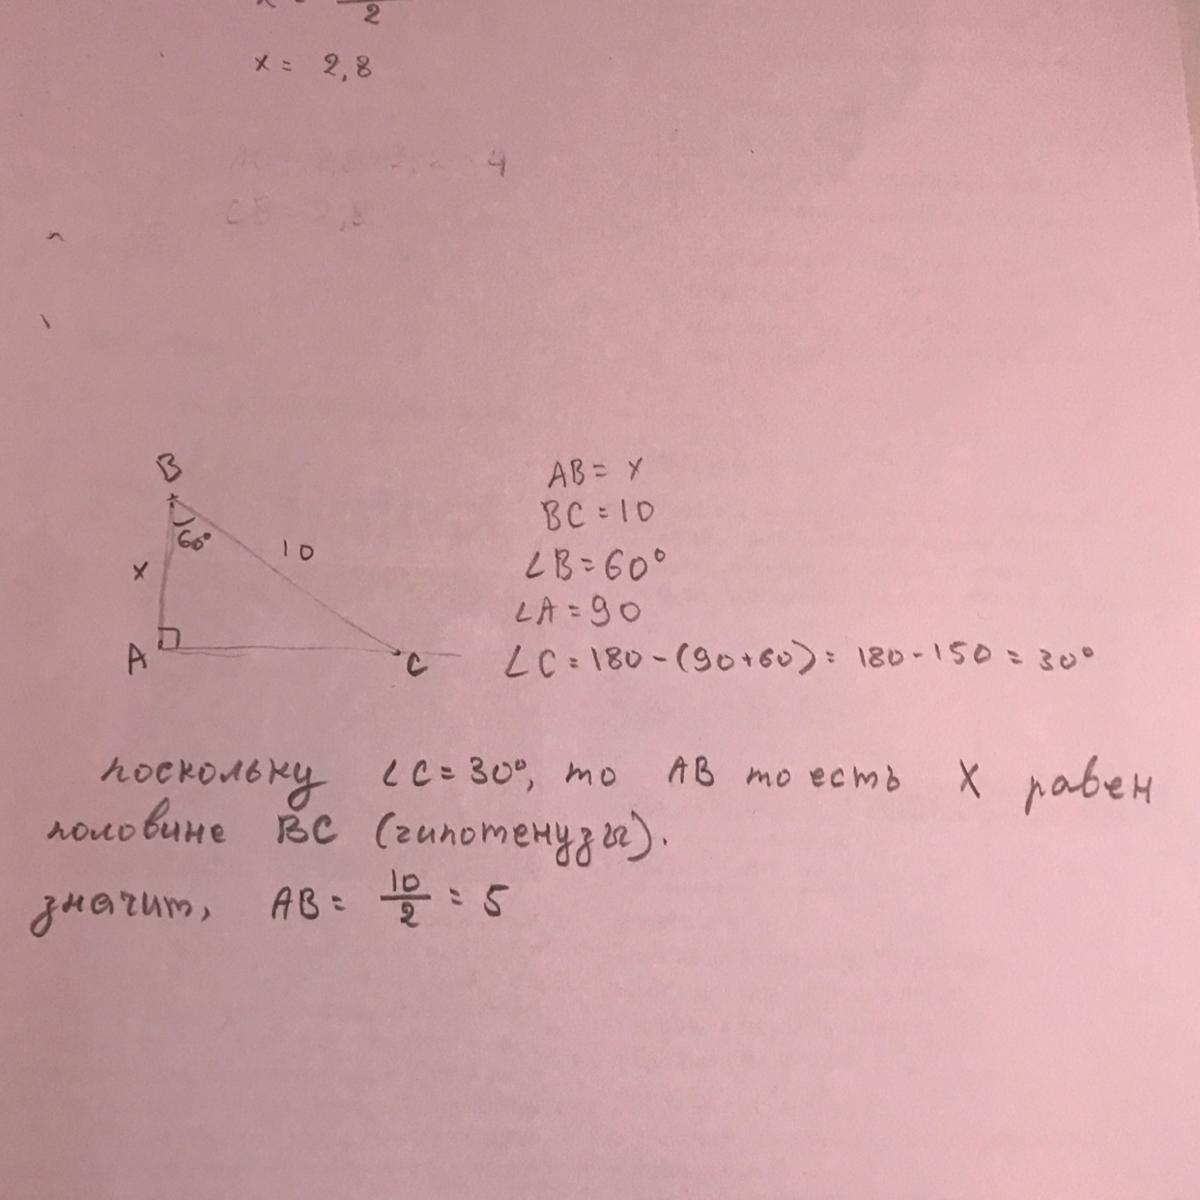 2
x = 2,8
4
B
60°
10
x
A
C
AB = x
BC = 10
∠B = 60°
∠A = 90
∠C = 180 - (90+60) = 180 - 150 = 30°
поскольку ∠C = 30°, то AB то есть X равен
половине BC (гипотенузы).
значит, AB = 10/2 = 5